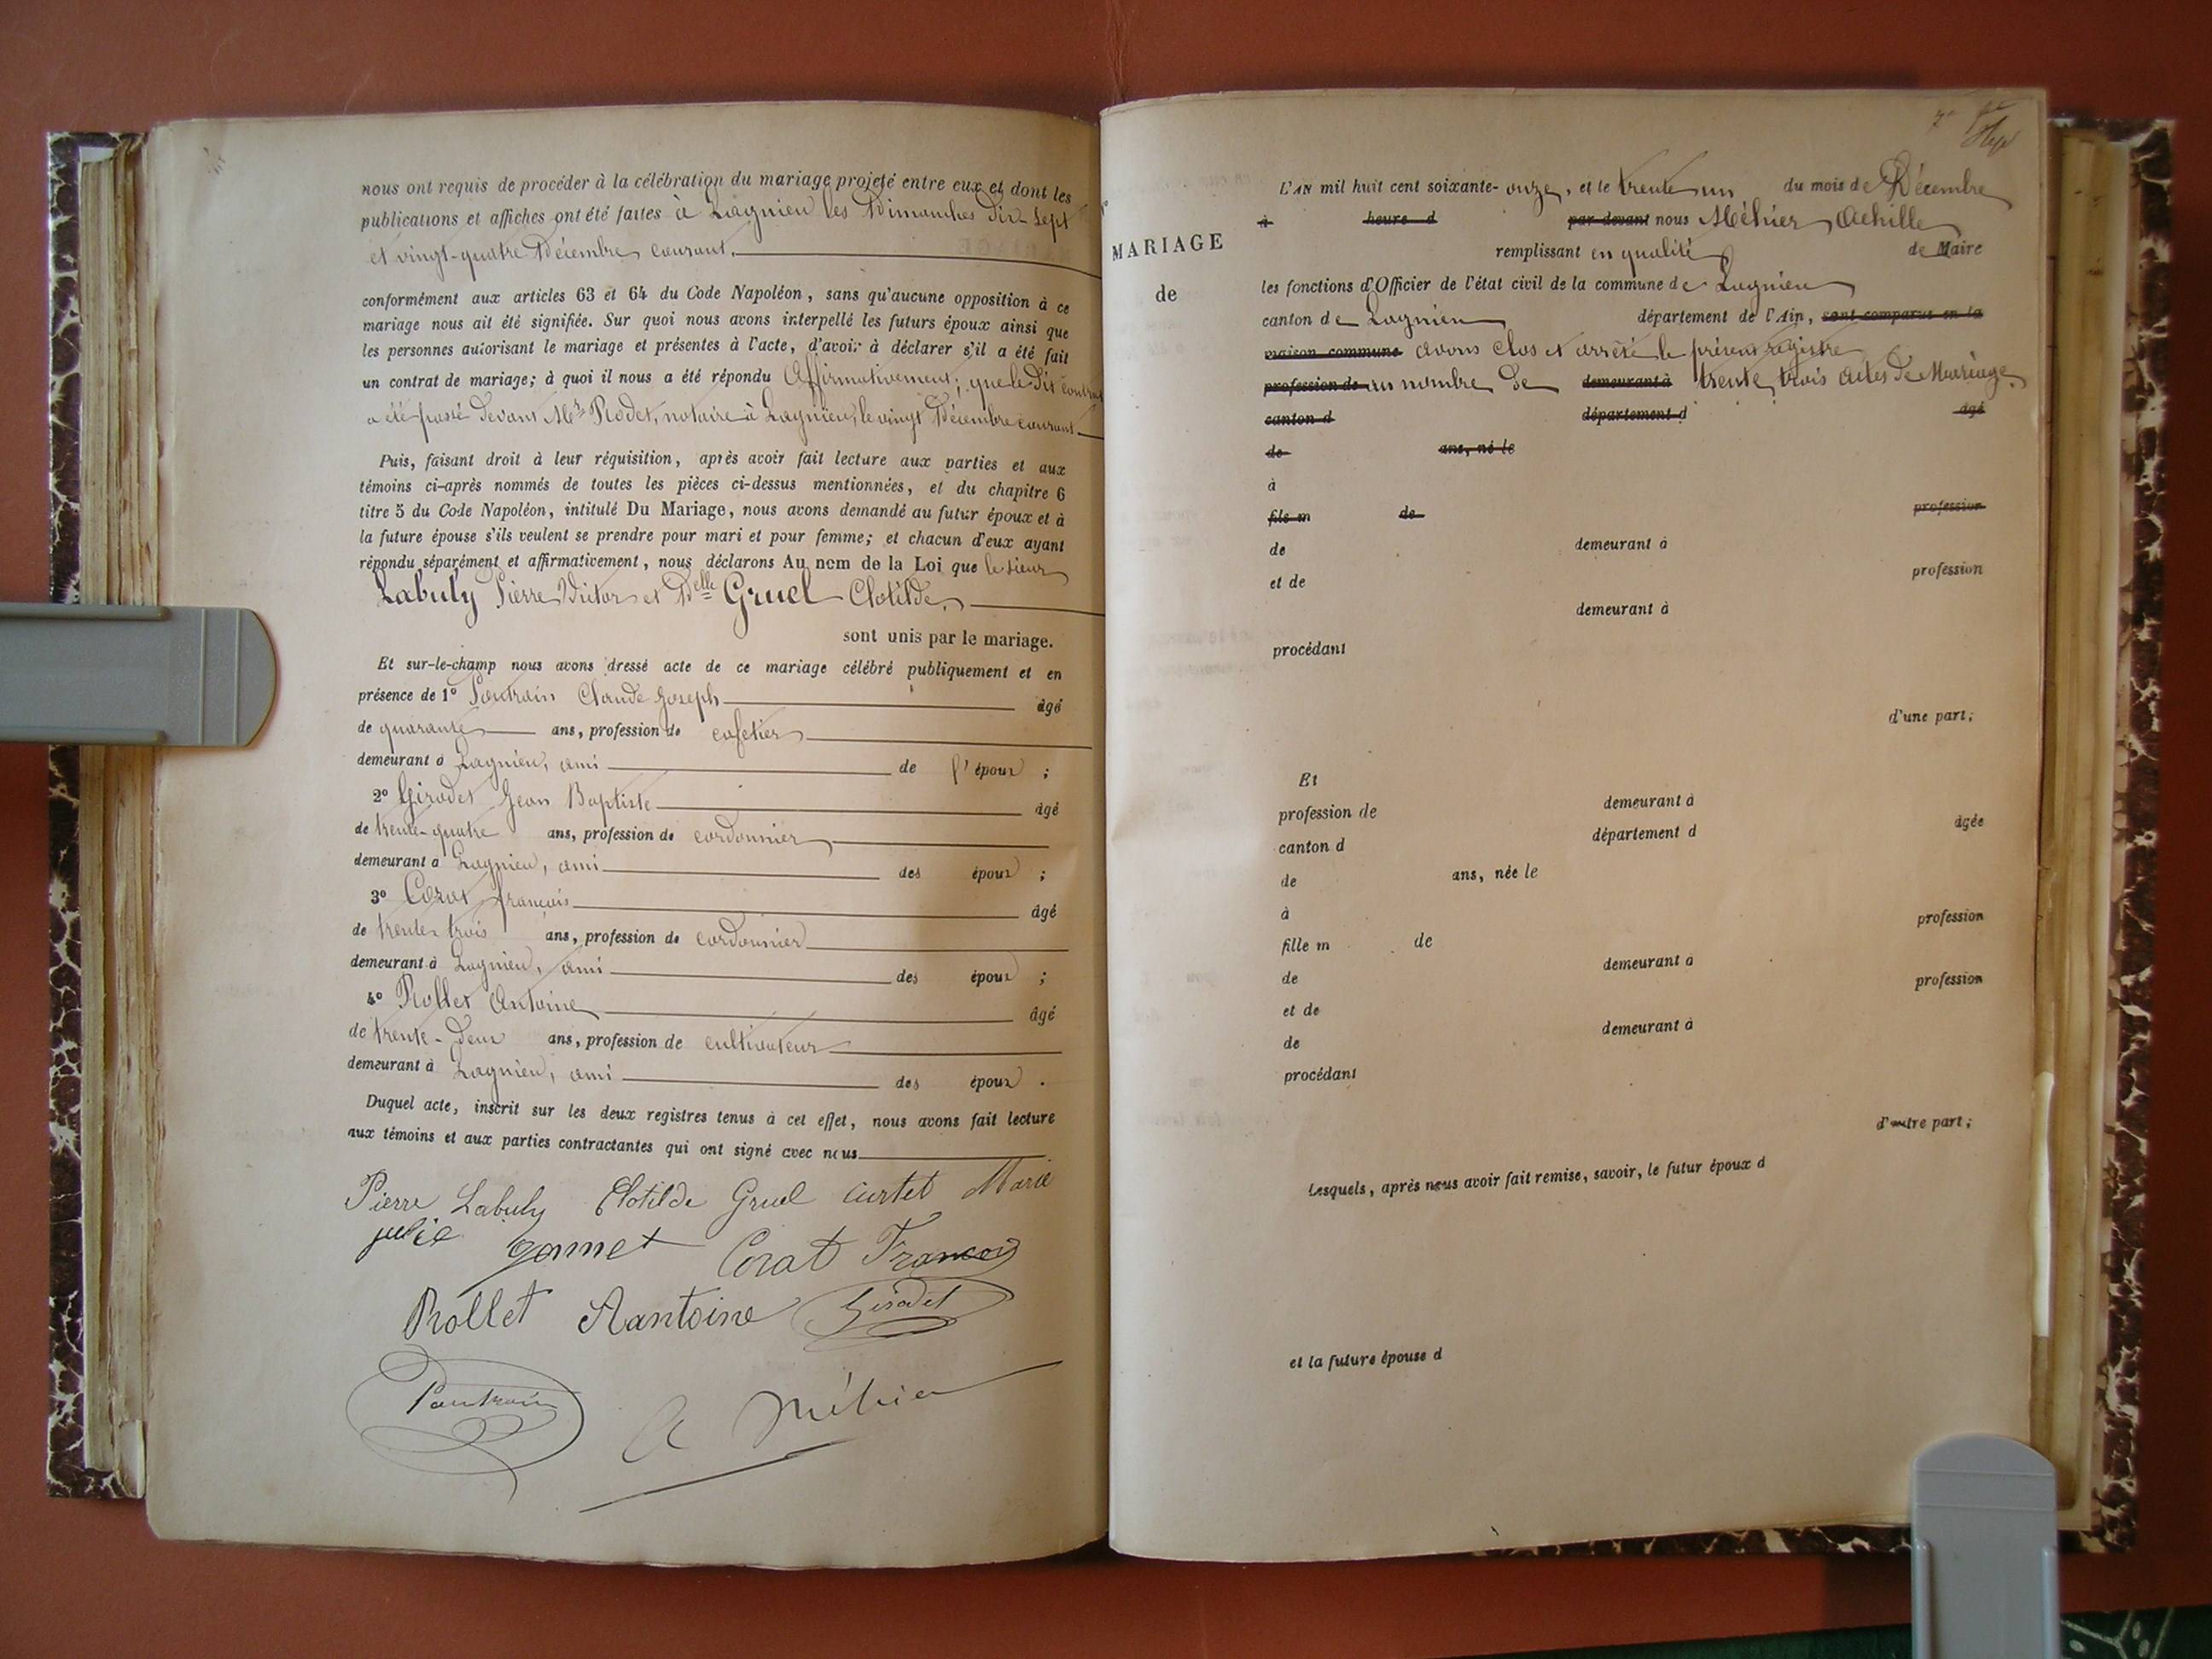 nous ont requis de procéder à la célébration du mariage projeté entre eux et dont les
publications et affiches ont été faites à Lagnieu les Dimanches Dix Sept
et vingt-quatre Décembre courant.
conformément aux articles 63 et 64 du Code Napoléon, sans qu'aucune opposition à ce
mariage nous ait été signifiée. Sur quoi nous avons interpellé les futurs époux ainsi que
les personnes autorisant le mariage et présentes à l'acte, d'avoir à déclarer s'il a été fait
un contrat de mariage; à quoi il nous a été répondu Affirmativement; que le Dit contrat
a été passé devant Mr Rodet, notaire à Lagnieu, le vingt Décembre courant
Puis, faisant droit à leur réquisition, après avoir fait lecture aux parties et aux
témoins ci-après nommés de toutes les pièces ci-dessus mentionnées, et du chapitre 6
titre 5 du Code Napoléon, intitulé Du Mariage, nous avons demandé au futur époux et à
la future épouse s'ils veulent se prendre pour mari et pour femme; et chacun d'eux ayant
répondu séparément et affirmativement, nous déclarons Au nom de la Loi que le sieur
Labuly Pierre Victor et Delle Gruel Clotilde,
sont unis par le mariage.
Et sur-le-champ nous avons dressé acte de ce mariage célébré publiquement et en
présence de 1° Pautrain Claude Joseph âgé
de quarante ans, profession de cafetier
demeurant à Lagnieu, ami de l'époux ;
2° Girodet Jean Baptiste âgé
de trente-quatre ans, profession de cordonnier
demeurant à Lagnieu, ami des époux ;
3° Corat françois âgé
de trente trois ans, profession de cordonnier
demeurant à Lagnieu, ami des époux ;
4° Rollet Antoine âgé
de trente-deux ans, profession de cultivateur
demeurant à Lagnieu, ami des époux .
Duquel acte, inscrit sur les deux registres tenus à cet effet, nous avons fait lecture
aux témoins et aux parties contractantes qui ont signé avec nous
Pierre Labuly Clotilde Gruel Curtet Marie
julie gonnet Corat Francois
Rollet Aantoine Girodet
Pautrain A Méhier
MARIAGE
de
L'AN mil huit cent soixante-onze, et le trente un du mois de Décembre
à heure d par devant nous Méhier Achille
remplissant en qualité de Maire
les fonctions d'Officier de l'état civil de la commune de Lagnieu
canton de Lagnieu département de l'Ain, sont comparus en la
maison commune avons clos et arrêté le présent registre
profession de au nombre de demeurant à trente trois actes de Mariage.
canton d département d âgé
de ans, né le
à
fils m de profession
de demeurant à
et de profession
demeurant à
procédant
d'une part;
Et
profession de demeurant à
canton d département d âgée
de ans, née le
à
fille m de profession
de demeurant à
et de profession
de demeurant à
procédant
d'autre part;
Lesquels, après nous avoir fait remise, savoir, le futur époux d
et la future épouse d